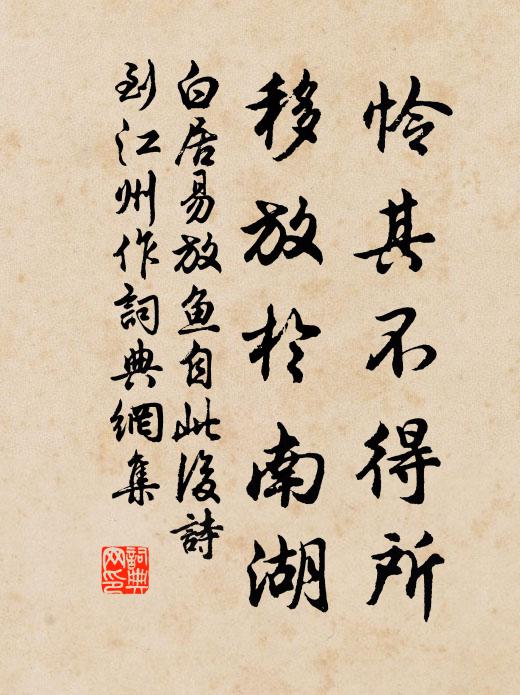 怜其不得所
移放於南湖
白居易放鱼自此后诗
到江州作词典網集
詞典
网印